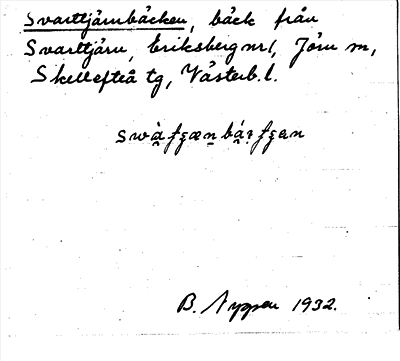 Svarttjärnbäcken, bäck från
Svarttjärn, Eriksberg nr 1, Jörn sn,
Skellefteå tg, Västerb. l.
B. Nyman 1932.